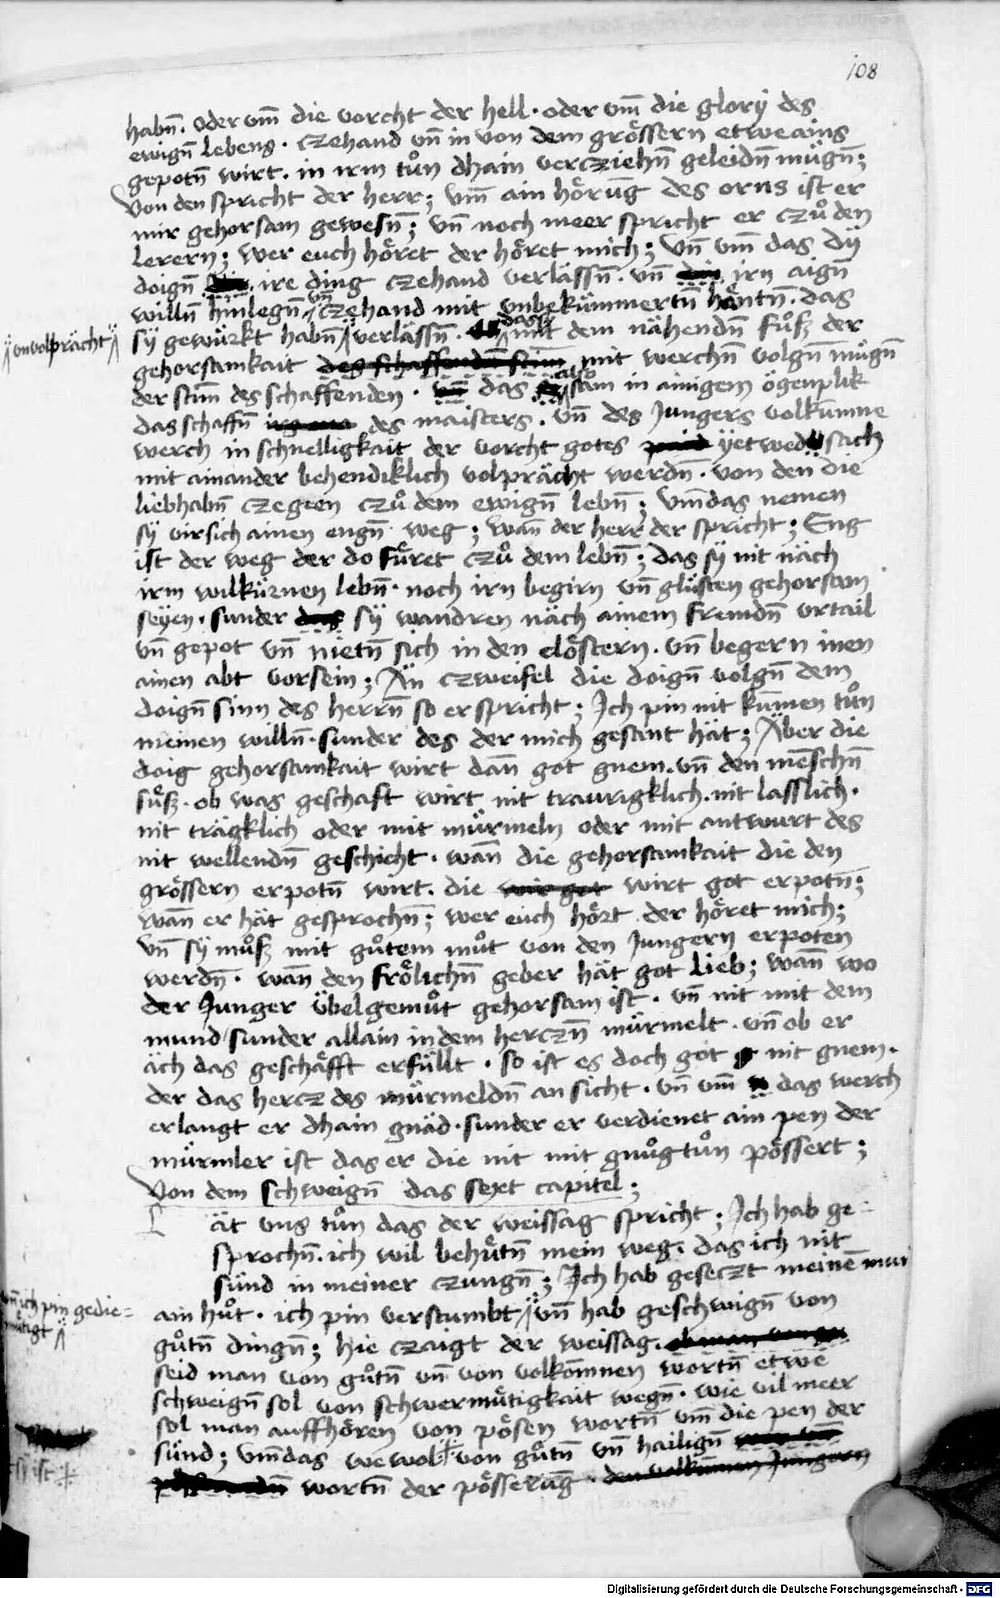 108
habn̄. oder vm̄ die vorcht der hell. oder vm̄ die glory des
ewign̄ lebens. czehand vn̄ in von dem grössern etweains
gepotn̄ wirt. in irm tůn dhain vercziehn̄ geleidn̄ mügn̄;
Von den spricht der herr; vm̄ ain hörūg des orns ist er
mir gehorsam gewesn̄; vn̄ noch meer spricht er czů den
lerern; wer euch höret der höret mich; Vn̄ vm̄ das dÿ
doign̄ ire ding czehand verlässn̄. vn̄ irn aign̄
willn̄ hinlegn̄ vn̄ czehand mit vnbekümmertn̄ häntn̄. das
vnvolprächt
sÿ gewürkt habn̄ verlässn̄. das sÿ mit dem nähendn̄ fůsz der
gehorsamkait des schaffendn̄ stim mit werchn̄ volgn̄ mügn̄
der stim̄ des schaffenden. vn̄ das also sam in ainigem ögenplik
das schaffn̄ des maisters. vn̄ des Jungers volkum̄ne
werch in schnelligkait der vorcht gotes yetwed sach
mit ainander behendiklich volprächt werdn̄. von den die
liebhabn̄ czegeen czů dem ewign̄ lebn̄; vm̄das nemen
sÿ vir sich ainen engn̄ weg; wan̄ der herr der spricht; Eng
ist der weg der do füret czů dem lebn̄; das sÿ nit näch
irm wilkürnen lebn̄. noch irn begirn vn̄ glüsten gehorsam
seÿen. sunder das sÿ wandren näch ainem fremdn̄ vrtail
vn̄ gepot vn̄ nietn̄ sich in den clöstern. vn̄ begern inen
ainen abt vorsein; Än czweifel die doign̄ volgn̄ dem
doign̄ sinn des herrn̄ so er spricht; Ich pin nit kum̄en tůn
meinen willn̄. sunder des der mich gesant hät; Äber die
doig gehorsamkait wirt dan̄ got gnem. vn̄ den men̄schn̄
süsz. ob was geschaft wirt nit traurigklich. nit lasslich.
nit trägklich oder mit mürmeln oder mit antwurt des
nit wellendn̄ geschicht. wan̄ die gehorsamkait die den
grössern erpotn̄ wirt. die wir got wirt got erpotn̄;
wan̄ er hät gesprochn̄; wer euch hört der höret mich;
vn̄ sÿ můsz mit gůtem můt von den Jungern erpoten
werdn̄. wan̄ den frölichn̄ geber hät got lieb; wan̄ wo
der Junger übelgemůt gehorsam ist. vn̄ nit mit dem
mund sunder allain in dem herczn̄ mürmelt. vn̄ ob er
äch das geschäfft erfüllt. so ist es doch got nit gnem.
der das hercz des mürmeldn̄ an sicht. vn̄ vm̄ das werch
erlangt er dhain gnäd. sunder er verdienet ain pen der
mürmler ist das er die nit mit gnůgtůn pössert;
Von dem schweign̄ das sext capitel;
L ät vns tůn das der weissag spricht; Ich hab ge=
sprochn̄. ich wil behütn̄ mein weg. das ich nit
sünd in meiner czungn̄; Ich hab geseczt meinē mun
vn̄ ich pin gedie=
mütigt
ain hůt. ich pin verstumbt vn̄ hab geschwign̄ von
gůtn̄ dingn̄; hie czaigt der weissag.
seid man von gůtn̄ vn̄ von volkom̄nen wortn̄ etwe
schweign̄ sol von schwermütigkait wegn̄. wie vil meer
sol man auffhören von pösen wortn̄ vm̄ die pen der
sÿ ist
sünd; vm̄das wewol von gůtn̄ vn̄ hailign̄
wortn̄ der pösserūg. den volkum̄nen Jungern
Digitalisierung gefördert durch die Deutsche Forschungsgemeinschaft - DFG